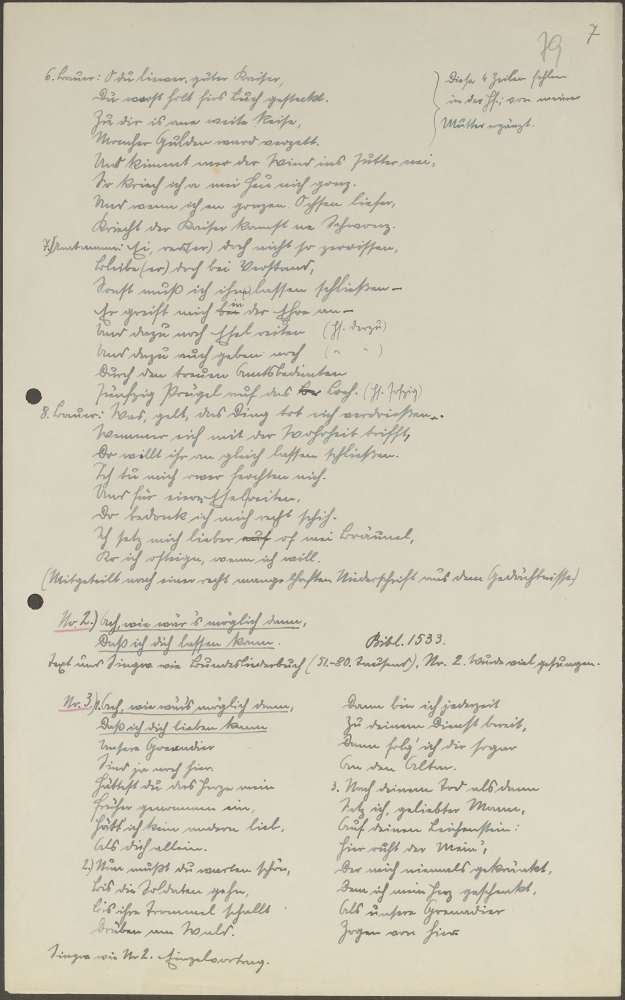 79
7
6. Bauer: O du liewer, guter Kaiser,
Du warst halt fürs Luch gesteckt.
Zu dir is mer weite Reise,
Mancher Gulden ward verzett.
Und kimmt mer der Wind ins Futter nei,
So kriech ich a mei Heu nich ganz.
Und wenn ich en ganzen Ochsen liefer,
Kriecht der Kaiser kaamst ne Schwanz.
Diese 4 Zeilen fehlen
in der Hs.; von meiner
Mutter ergänzt.
7. Amtmann: Ei, red(er) doch nicht so zerrissen,
Bleibe (er) doch bei Verstand,
Sonst muß ich ihn lassen schließen –
Er greift mich in der Ehre an –
Und dazu noch Esel reiten (Hs. derzu)
Und dazu auch geben noch (" ")
Durch den treuen Amtsbedienten
Fünfzig Prügel auf das Loch. (Hs. fufzig)
8. Bauer: Was, gelt, das Ding tot eich verdrießen.
Wemmer eich mit der Wohrheit trifft,
Do willt ihr an gleich lassen schließen.
Ich tu mich ewer ferchten nich.
Und für eier Eselreiten,
Do bedank ich mich recht schih.
Ich setz mich lieber of mei Bräunel,
Ko ich ofsteign, wenn ich will.
(Mitgeteilt nach einer recht mangelhaften Niederschrift aus dem Gedächtnisse)
Nr. 2.) Ach, wie wär's möglich dann,
Daß ich dich lassen kann.
Bibl. 1533.
Text und Singw. wie Bundesliederbuch (51.-80. Tausend), Nr. 2. Wurde viel gesungen.
Nr. 3.) 1. Ach, wie wär's möglich dann,
Daß ich dich lieben kann
Unsere Grenadier
Sind ja noch hier.
Hättest du das Herze mein
Früher genommen ein,
Hätt ich kein andern lieb,
Als dich allein.
2.) Nun mußt du warten schön,
Bis die Soldaten gehn,
Bis ihre Trommel schallt
Drüben am Wald.
Dann bin ich jederzeit
Zu deinem Dienst bereit,
Dann folg' ich dir sogar
An den Altar.
3. Nach deinem Tod alsdann
Setz ich, geliebter Mann,
Auf deinen Leichenstein:
Hier ruht der Mein',
Der mich niemals gekränket,
Dem ich mein Herz geschenkt,
Als unsere Grenadier
Zogen von hier.
Singw. wie Nr. 2. Einzelvortrag.